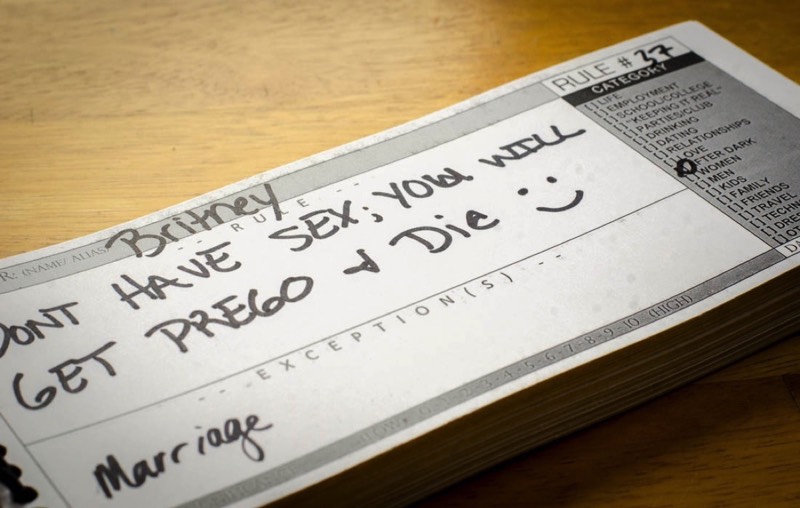 RULE # 37
CATEGORY
[ ] LIFE
[ ] EMPLOYMENT
[ ] SCHOOL/COLLEGE
[ ] "KEEPING IT REAL"
[ ] PARTIES/CLUB
[ ] DRINKING
[ ] DATING
[ ] RELATIONSHIPS
OVE
FTER DARK
WOMEN
[ ] MEN
[ ] KIDS
[ ] FAMILY
[ ] FRIENDS
[ ] TRAVEL
R: (NAME/ ALIAS) Britney
- - RULE - -
DONT HAVE SEX; YOU WILL
GET PREGO & DIE :)
- - - EXCEPTION(S) - - -
Marriage
0-1-2-3-4-5-6-7-8-9-10 (HIGH)